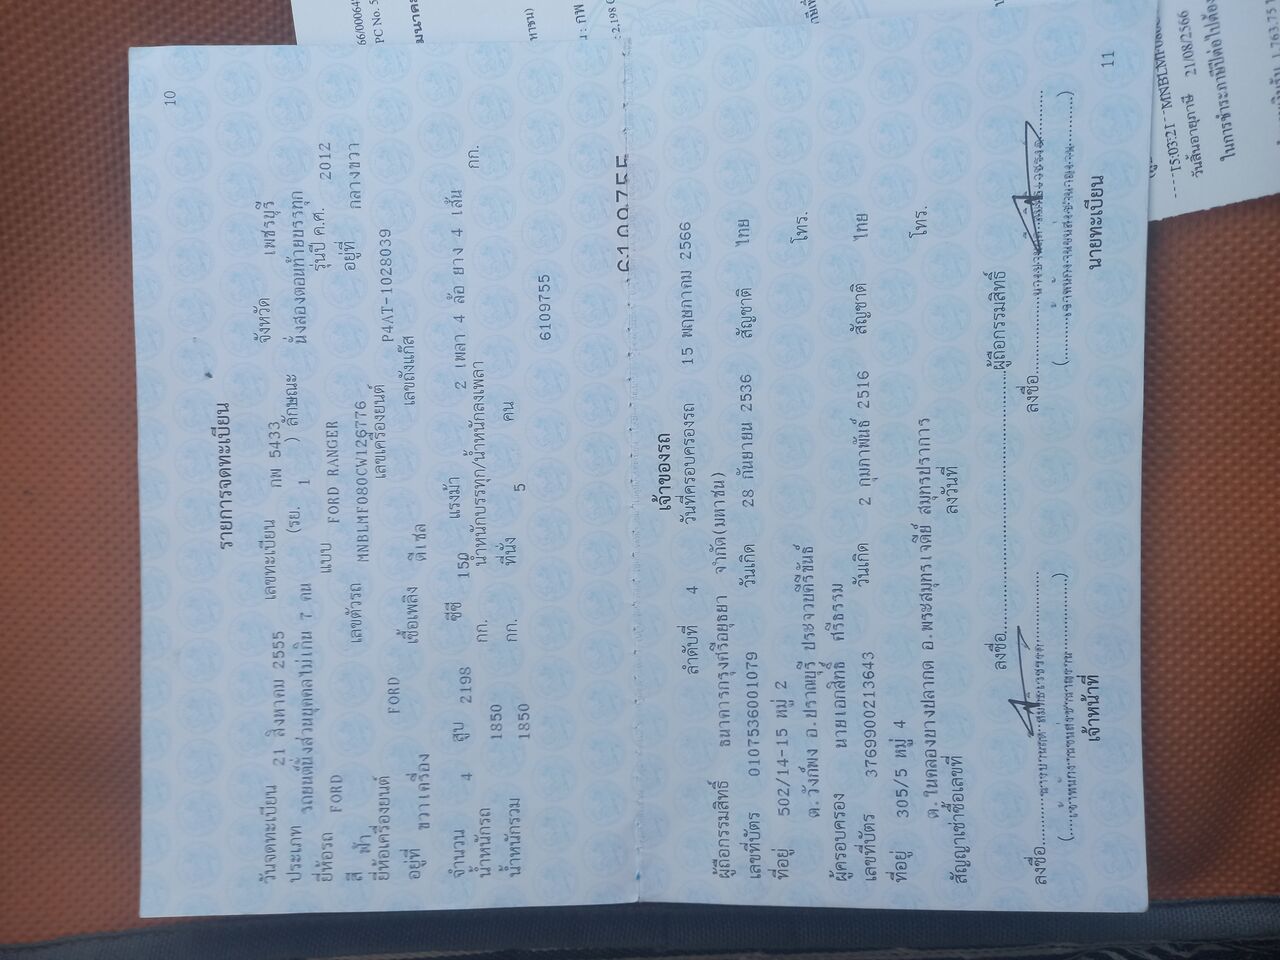 10
รายการจดทะเบียน
วันจดทะเบียน 21 สิงหาคม 2555 เลขทะเบียน กพ 5433 จังหวัด เพชรบุรี
ประเภท รถยนต์นั่งส่วนบุคคลไม่เกิน 7 คน (รย. 1 ) ลักษณะ นั่งสองตอนท้ายบรรทุก
ยี่ห้อรถ FORD แบบ FORD RANGER รุ่นปี ค.ศ. 2012
สี ฟ้า เลขตัวรถ MNBLMF080CW126776 อยู่ที่ กลางขวา
ยี่ห้อเครื่องยนต์ FORD เลขเครื่องยนต์ P4AT-1028039
อยู่ที่ ขวาเครื่อง เชื้อเพลิง ดีเซล เลขถังแก๊ส
จำนวน 4 สูบ 2198 ซีซี 150 แรงม้า 2 เพลา 4 ล้อ ยาง 4 เส้น
น้ำหนักรถ 1850 กก. น้ำหนักบรรทุก/น้ำหนักลงเพลา กก.
น้ำหนักรวม 1850 กก. ที่นั่ง 5 คน
6109755
6109755
เจ้าของรถ
ลำดับที่ 4 วันที่ครอบครองรถ 15 พฤษภาคม 2566
ผู้ถือกรรมสิทธิ์ ธนาคารกรุงศรีอยุธยา จำกัด(มหาชน)
เลขที่บัตร 0107536001079 วันเกิด 28 กันยายน 2536 สัญชาติ ไทย
ที่อยู่ 502/14-15 หมู่ 2 โทร.
ต.วังก์พง อ.ปราณบุรี ประจวบคีรีขันธ์
ผู้ครอบครอง นายเอกสิทธิ์ ศรีธรรม
เลขที่บัตร 3769900213643 วันเกิด 2 กุมภาพันธ์ 2516 สัญชาติ ไทย
ที่อยู่ 305/5 หมู่ 4 โทร.
ต.ในคลองบางปลากด อ.พระสมุทรเจดีย์ สมุทรปราการ
สัญญาเช่าซื้อเลขที่ ลงวันที่
ลงชื่อ ผู้ถือกรรมสิทธิ์
ลงชื่อ ลงชื่อ
เจ้าหน้าที่ นายทะเบียน
11
PC No. 5
15:03:21
วันสิ้นอายุภาษี 21/08/2566
ในการชำระภาษีปีต่อไปต้อง